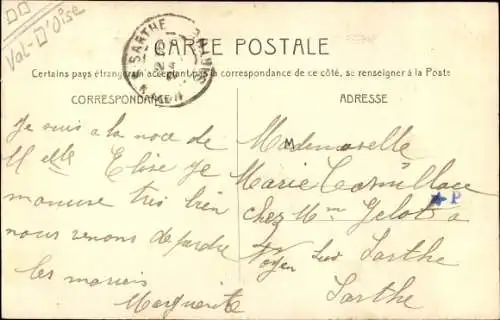 Val-D'Oise
SARTHE
CARTE POSTALE
Certains pays étrangers n'acceptant pas la correspondance de ce côté, se renseigner à la Poste
CORRESPONDANCE
ADRESSE
Je suis a la noce de
Melle Elise je
manuse tres bien
nous venons de pardre
les mariers
Marguerite
Mademoiselle
Marie
chez Mme Gelot a
Noyen sur Sarthe
Sarthe
P